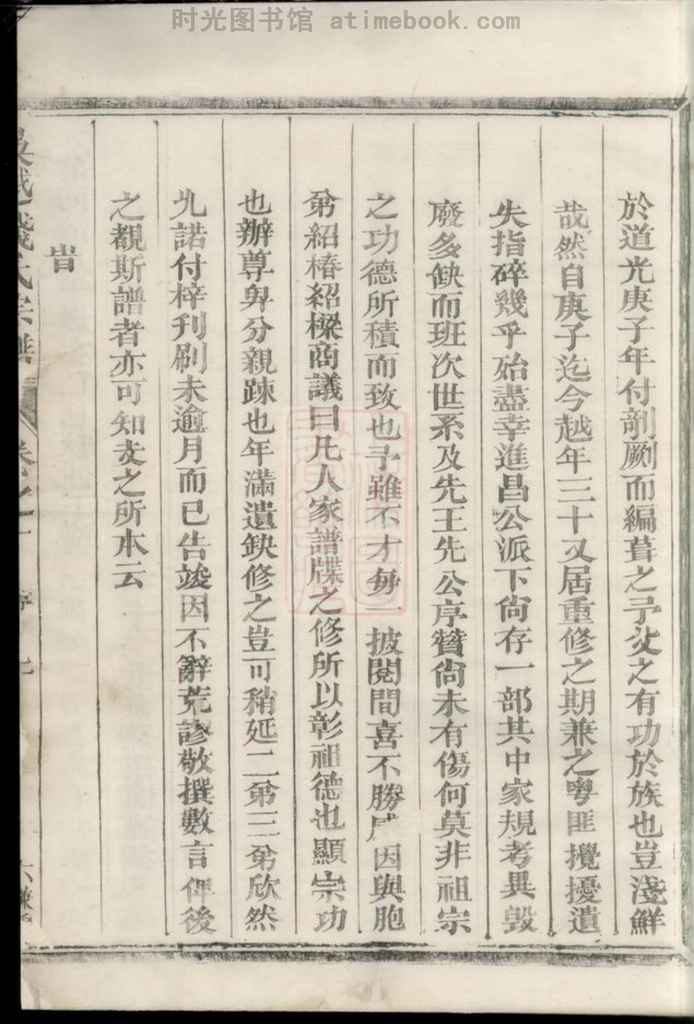 时光图书馆 atimebook.com
於道光庚子年付剞劂而編葺之予父之有功於族也豈淺鮮
哉然自庚子迄今越年三十又居重修之期兼之粵匪攪擾遺
失指碎幾乎始盡幸進昌公派下尙存一部其中家規考異毀
廢多缺而班次世系及先王先公序贊尙未有傷何莫非祖宗
之功德所積而致也予雖不才每一披閱間喜不勝感因與胞
弟紹椿紹樑商議曰凡人家譜牒之修所以彰祖德也顯宗功
也辦尊卑分親踈也年滿遺缺修之豈可稍延二弟三弟欣然
允諾付梓刋刷未逾月而已告竣因不辭荒謬敬撰數言俾後
之覩斯譜者亦可知支之所本云